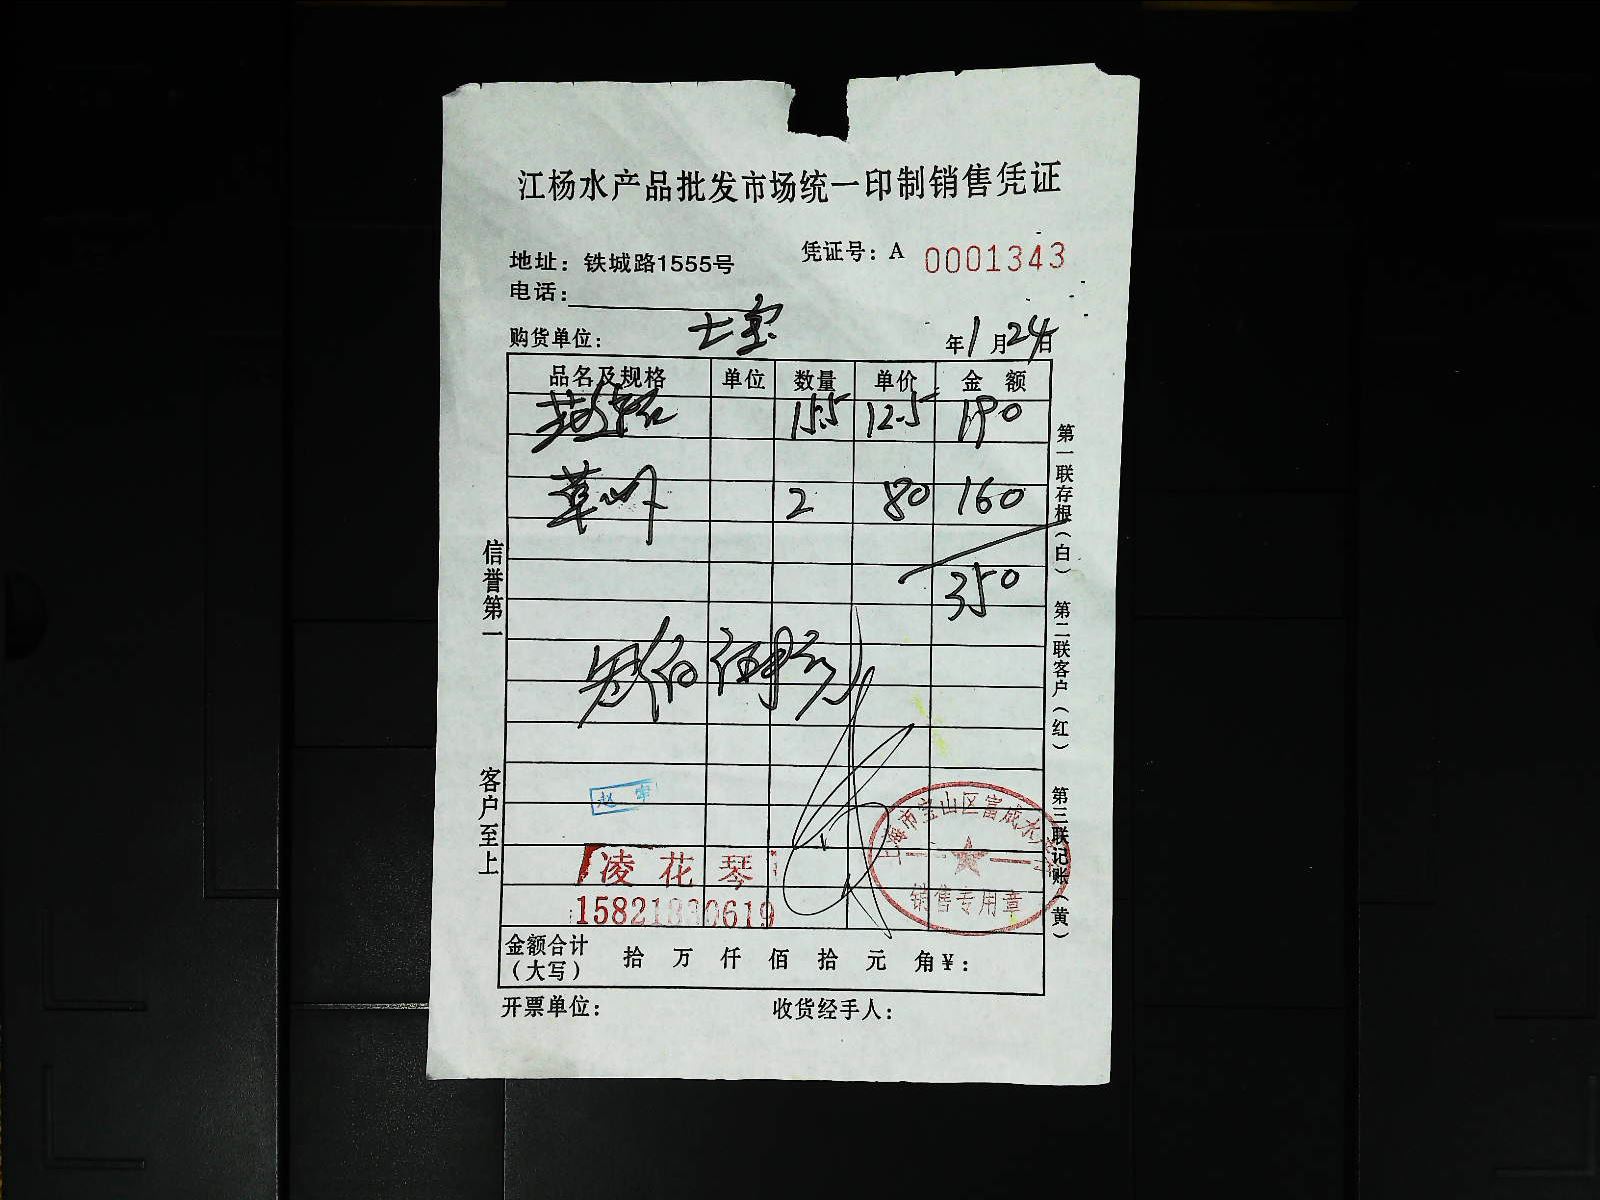 江杨水产品批发市场统一印制销售凭证
地址：铁城路1555号
凭证号：A 0001343
电话：
购货单位： 七宝
年1月24日
品名及规格 单位 数量 单价 金额
15.5 12.5 190
草虾 2 80 160
350
叁佰伍拾元
信誉第一
客户至上
第一联存根（白）
第二联客户（红）
第三联记账（黄）
赵
凌花琴
上海市宝山区富成水
销售专用章
金额合计（大写） 拾 万 仟 佰 拾 元 角 ¥：
开票单位：
收货经手人：